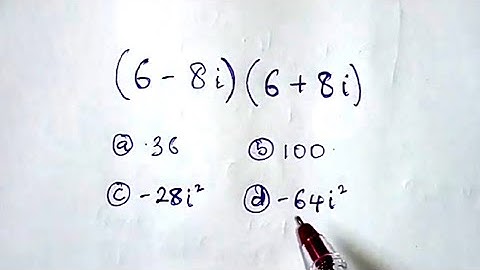 (6 - 8i)(6 + 8i)
ⓐ 36 ⓑ 100
ⓒ -28i² ⓓ -64i²